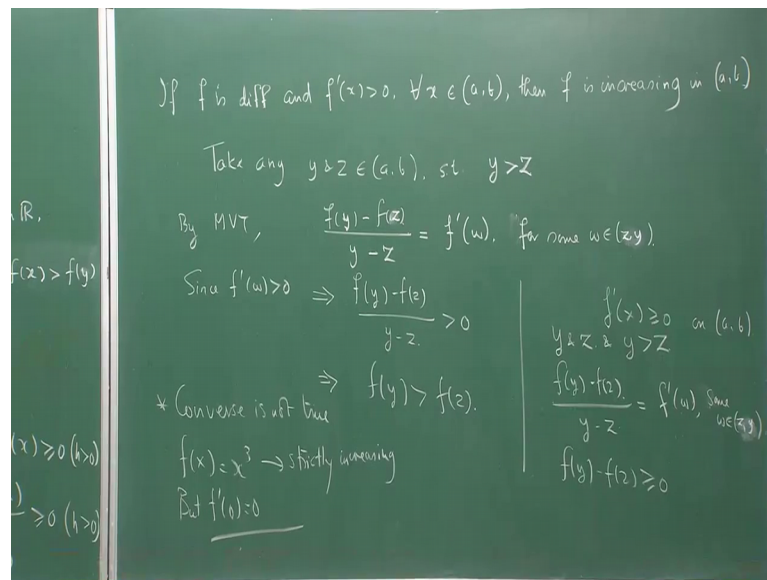 R,
f(x) > f(y)
(x) ≥ 0 (h>0)
≥ 0 (h>0)
If f is diff and f'(x) > 0, ∀ x ∈ (a,b), then f is increasing in (a,b)
Take any y & z ∈ (a,b), st. y > z
By MVT, f(y) - f(z) / y - z = f'(w), for some w ∈ (z,y).
Since f'(w) > 0 ⇒ f(y) - f(z) / y - z > 0
⇒ f(y) > f(z).
* Converse is not true
f(x) = x³ → strictly increasing
But f'(0) = 0
f'(x) ≥ 0 on (a,b)
y & z & y > z
f(y) - f(z) / y - z = f'(w), some w ∈ (z,y)
f(y) - f(z) ≥ 0